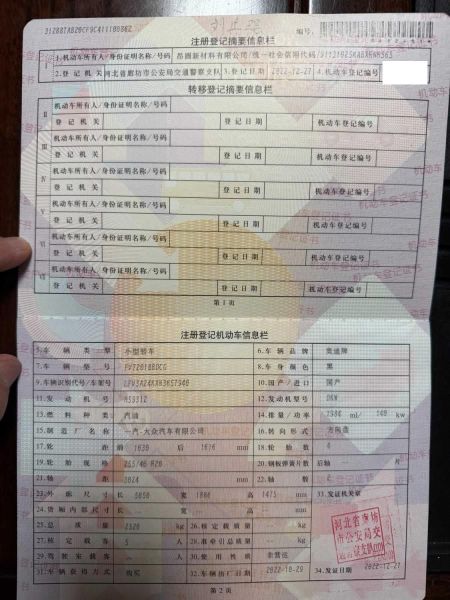 编号:
注册登记摘要信息栏
1.机动车所有人/身份证明名称/号码
昂围新材料有限公司/统一社会信用代码/
2.登 记 机 关 河北省廊坊市公安局交通警察支队 3.登记日期 2022-12-27 4.机动车登记编号
转移登记摘要信息栏
II 机动车所有人/身份证明名称/号码
登 记 机 关 登 记 日 期 机动车登记编号
III 机动车所有人/身份证明名称/号码
登 记 机 关 登 记 日 期 机动车登记编号
IV 机动车所有人/身份证明名称/号码
登 记 机 关 登 记 日 期 机动车登记编号
V 机动车所有人/身份证明名称/号码
登 记 机 关 登 记 日 期 机动车登记编号
VI 机动车所有人/身份证明名称/号码
登 记 机 关 登 记 日 期 机动车登记编号
VII 机动车所有人/身份证明名称/号码
登 记 机 关 登 记 日 期 机动车登记编号
第 1 页
注册登记机动车信息栏
5.车 辆 类 型 小型轿车 6.车 辆 品 牌 奥迪牌
7.车 辆 型 号 8.车 身 颜 色 黑
9.车辆识别代号/车架号 10.国 产 / 进 口 国产
11.发 动 机 号 12.发动机型号 DKW
13.燃 料 种 类 汽油 14.排 量 / 功 率 1984 ml/ 140 kw
15.制 造 厂 名 称 一汽-大众汽车有限公司 16.转 向 形 式 方向盘
17.轮 距 前 1639 后 1616 mm 18.轮 胎 数 4
19.轮 胎 规 格 255/40 R20 20.钢板弹簧片数 后轴 片
21.轴 距 3024 mm 22.轴 数 2
23.外 廓 尺 寸 长 5050 宽 1886 高 1475 mm 33.发证机关章
24.货厢内部尺寸 长 宽 高 mm
25.总 质 量 2320 kg 26.核 定 载 质 量 kg
27.核 定 载 客 5 人 28.准牵引总质量 kg
29.驾 驶 室 载 客 人 30.使 用 性 质 非营运
31.车 辆 获 得 方 式 购买 32.车辆出厂日期 2022-10-29 34.发证日期 2022-12-27
河北省廊坊
市公安局交
第 2 页